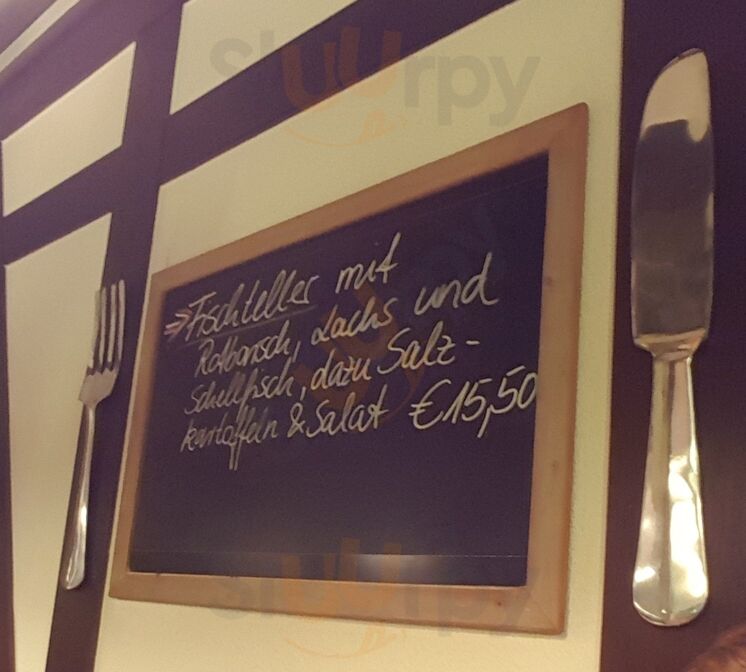 Slurpy
Fischteller mit
Rotbarsch, Lachs und
Schellfisch, dazu Salz-
kartoffeln & Salat €15,50
Slurpy